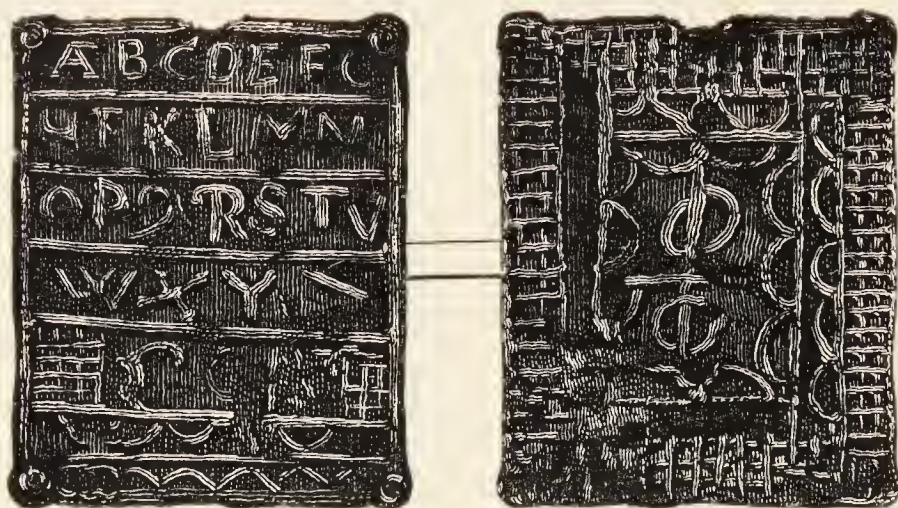 A B C D E F G
H I K L M N
O P Q R S T V
W X Y Z